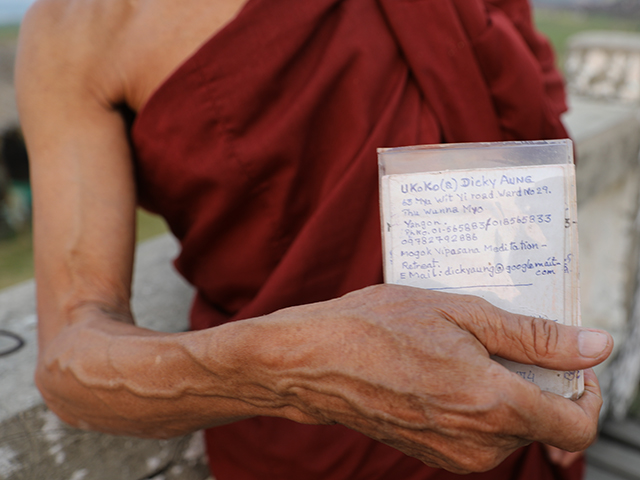 UKoKo(a) Dicky AUNG
63 Mya Wit Yi road. Ward No 29.
Thu Wanna Myo
Yangon.
PhNo. 01-565833/018565833
09782742886
Mogok Vipasana Meditation-
Retreat
E Mail: dickyaung@googlemail.
com